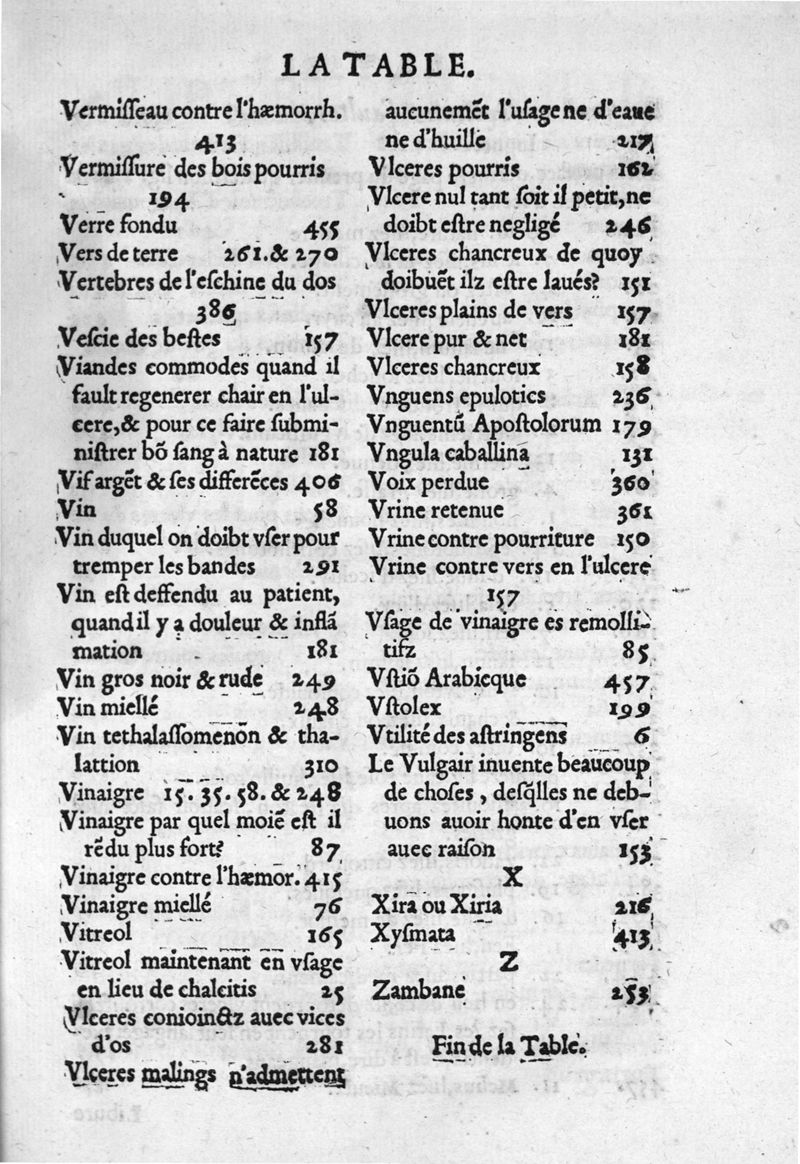 LA TABLE.
Vermiſſeau contre l'hæmorrh.
413
Vermiſſure des bois pourris
194
Verre fondu 455
Vers de terre 261. & 270
Vertebres de l'eſchine du dos
386
Veſcie des beſtes 157
Viandes commodes quand il
fault regenerer chair en l'ul-
cere, & pour ce faire ſubmi-
niſtrer bõ ſang à nature 181
Vif argẽt & ſes differẽces 406
Vin 58
Vin duquel on doibt vſer pour
tremper les bandes 291
Vin eſt deffendu au patient,
quand il y a douleur & inflã
mation 181
Vin gros noir & rude 249
Vin miellé 248
Vin tethalaſſomenon & tha-
lattion 310
Vinaigre 15. 35. 58. & 248
Vinaigre par quel moiẽ eſt il
rẽdu plus fort? 87
Vinaigre contre l'hæmor. 415
Vinaigre miellé 76
Vitreol 165
Vitreol maintenant en vſage
en lieu de chalcitis 25
Vlceres conioinctz auec vices
d'os 281
Vlceres malings n'admettent
aucunemẽt l'uſage ne d'eaue
ne d'huille 217
Vlceres pourris 162
Vlcere nul tant ſoit il petit, ne
doibt eſtre negligé 246
Vlceres chancreux de quoy
doibuẽt ilz eſtre laués? 151
Vlceres plains de vers 157
Vlcere pur & net 181
Vlceres chancreux 158
Vnguens epulotics 236
Vnguentũ Apoſtolorum 179
Vngula caballina 131
Voix perdue 360
Vrine retenue 361
Vrine contre pourriture 150
Vrine contre vers en l'ulcere
157
Vſage de vinaigre es remolli-
tifz 85
Vſtiõ Arabicque 457
Vſtolex 199
Vtilité des aſtringens 6
Le Vulgair inuente beaucoup
de choſes, deſq̃lles ne deb-
uons auoir honte d'en vſer
auec raiſon 153
X
Xira ou Xiria 216
Xyſmata 413
Z
Zambane 253
Fin de la Table.